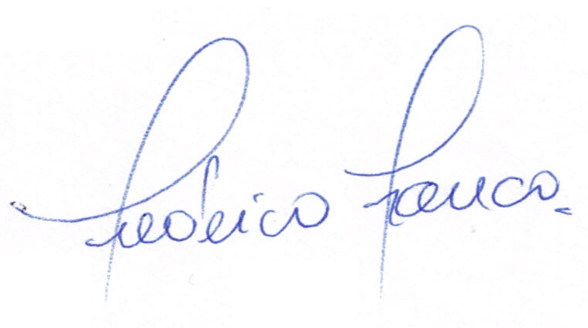 Federico Franco